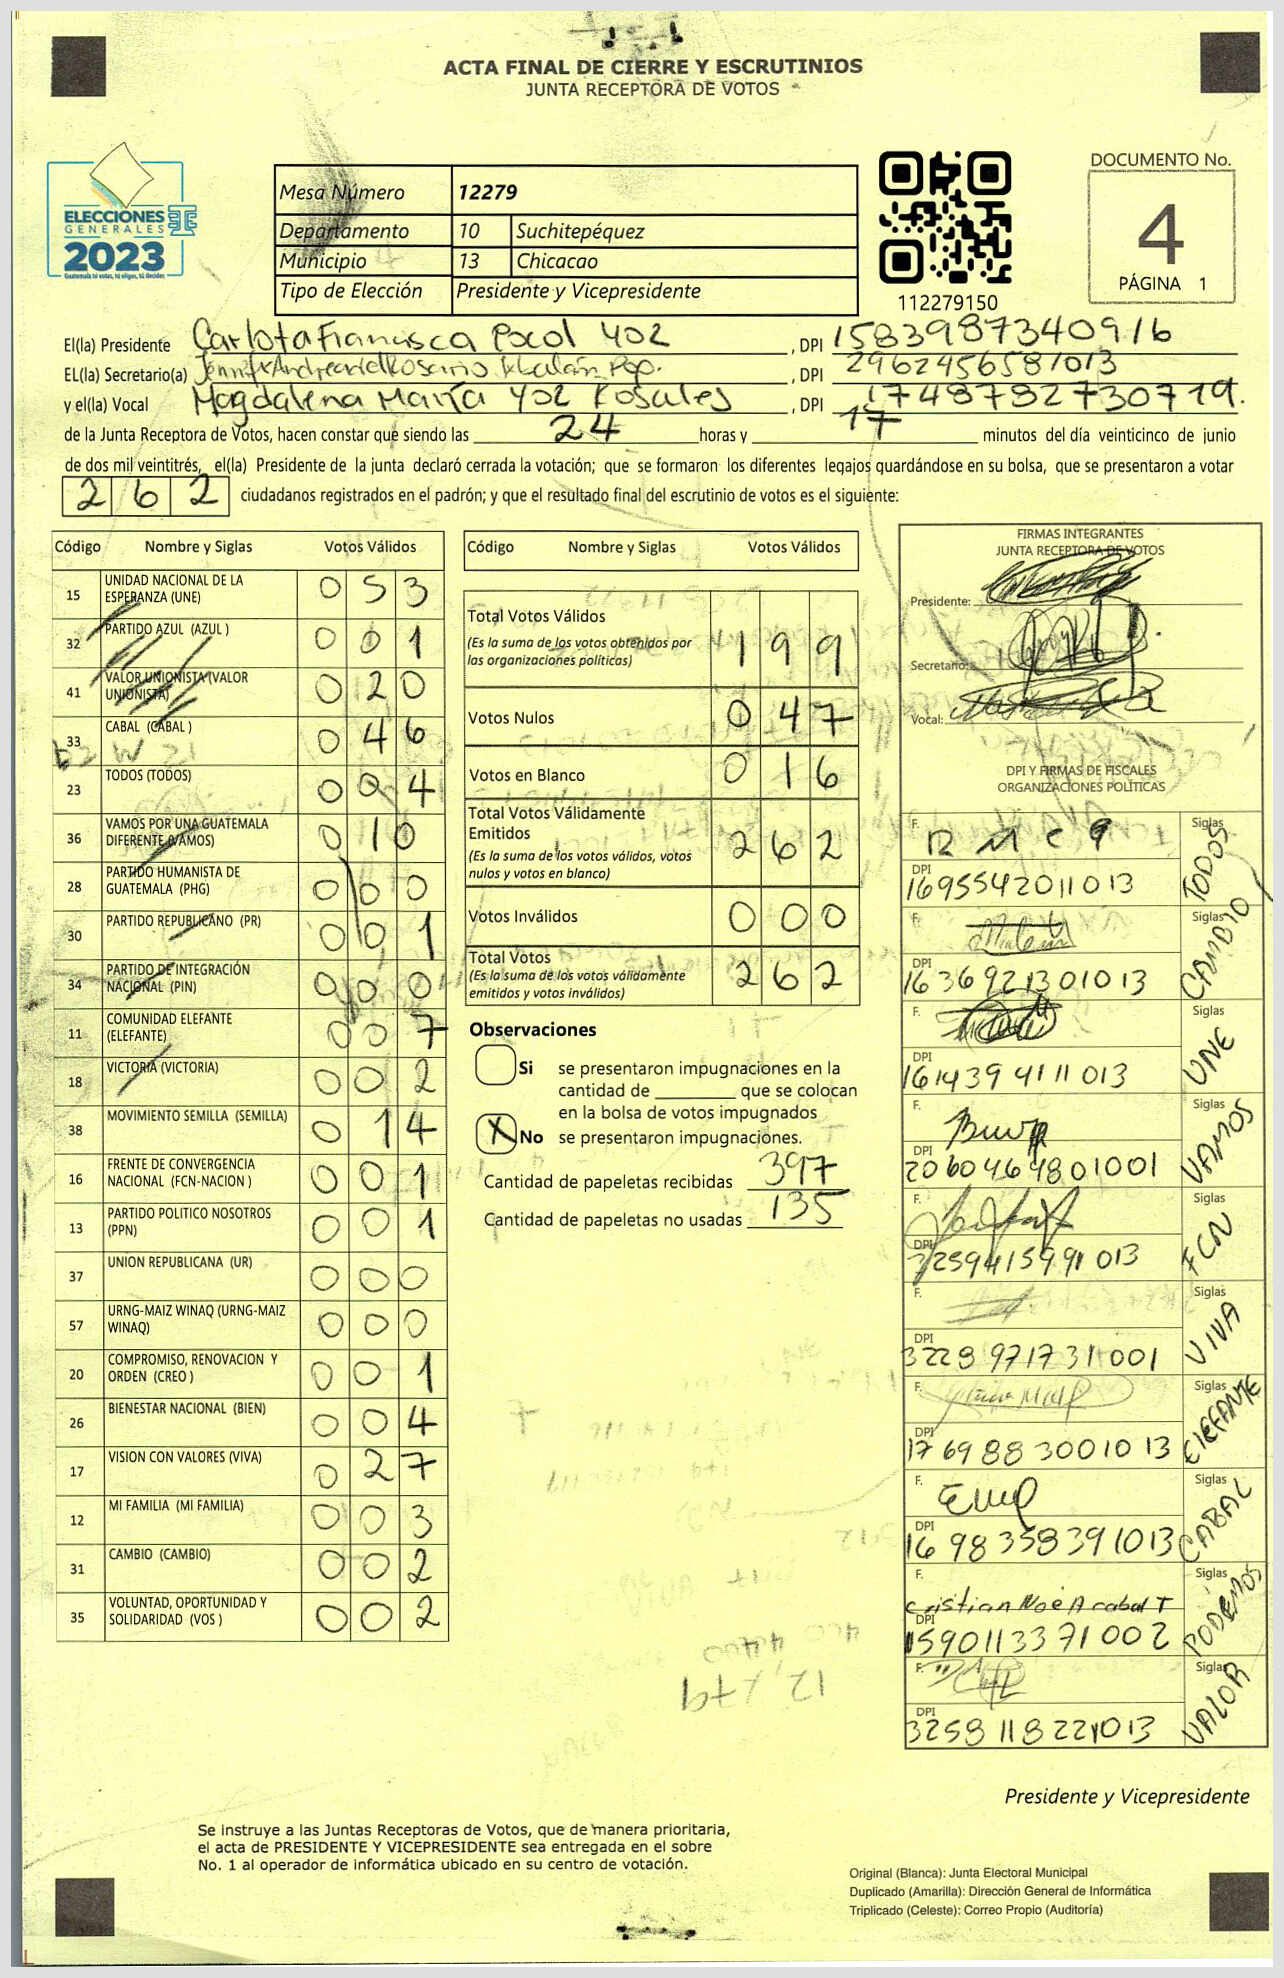 ACTA FINAL DE CIERRE Y ESCRUTINIOS
JUNTA RECEPTORA DE VOTOS
ELECCIONES
GENERALES
2023
Guatemala tú votas, tú eliges, tú decides
Mesa Número 12279
Departamento 10 Suchitepéquez
Municipio 13 Chicacao
Tipo de Elección Presidente y Vicepresidente
112279150
DOCUMENTO No.
4
PÁGINA 1
El(la) Presidente Carlota Francisca Pocol Yoz , DPI 1583987340916
EL(la) Secretario(a) Rosario , DPI 2962456581013
y el(la) Vocal Magdalena María Yoz Rosales , DPI 1748782730719.
de la Junta Receptora de Votos, hacen constar que siendo las 24 horas y 17 minutos del día veinticinco de junio
de dos mil veintitrés, el(la) Presidente de la junta declaró cerrada la votación; que se formaron los diferentes legajos guardándose en su bolsa, que se presentaron a votar
262 ciudadanos registrados en el padrón; y que el resultado final del escrutinio de votos es el siguiente:
Código Nombre y Siglas Votos Válidos
15 UNIDAD NACIONAL DE LA ESPERANZA (UNE) 053
32 PARTIDO AZUL (AZUL ) 001
41 VALOR UNIONISTA (VALOR UNIONISTA) 020
33 CABAL (CABAL ) 046
23 TODOS (TODOS) 004
36 VAMOS POR UNA GUATEMALA DIFERENTE (VAMOS) 010
28 PARTIDO HUMANISTA DE GUATEMALA (PHG) 000
30 PARTIDO REPUBLICANO (PR) 001
34 PARTIDO DE INTEGRACIÓN NACIONAL (PIN) 000
11 COMUNIDAD ELEFANTE (ELEFANTE) 007
18 VICTORIA (VICTORIA) 002
38 MOVIMIENTO SEMILLA (SEMILLA) 014
16 FRENTE DE CONVERGENCIA NACIONAL (FCN-NACION ) 001
13 PARTIDO POLITICO NOSOTROS (PPN) 001
37 UNION REPUBLICANA (UR) 000
57 URNG-MAIZ WINAQ (URNG-MAIZ WINAQ) 000
20 COMPROMISO, RENOVACION Y ORDEN (CREO ) 001
26 BIENESTAR NACIONAL (BIEN) 004
17 VISION CON VALORES (VIVA) 027
12 MI FAMILIA (MI FAMILIA) 003
31 CAMBIO (CAMBIO) 002
35 VOLUNTAD, OPORTUNIDAD Y SOLIDARIDAD (VOS ) 002
Código Nombre y Siglas Votos Válidos
Total Votos Válidos 199
(Es la suma de los votos obtenidos por
las organizaciones políticas)
Votos Nulos 047
Votos en Blanco 016
Total Votos Válidamente
Emitidos 262
(Es la suma de los votos válidos, votos
nulos y votos en blanco)
Votos Inválidos 000
Total Votos 262
(Es la suma de los votos válidamente
emitidos y votos inválidos)
Observaciones
Si se presentaron impugnaciones en la
cantidad de que se colocan
en la bolsa de votos impugnados
X No se presentaron impugnaciones.
Cantidad de papeletas recibidas 397
Cantidad de papeletas no usadas 135
FIRMAS INTEGRANTES
JUNTA RECEPTORA DE VOTOS
Presidente:
Secretario:
Vocal:
DPI Y FIRMAS DE FISCALES
ORGANIZACIONES POLÍTICAS
F. Siglas TODOS
DPI 1695542011013
F. Siglas CAMBIO
DPI 1636921301013
F. Siglas UNE
DPI 1614394111013
F. Siglas VAMOS
DPI 2060464801001
F. Siglas FCN
DPI 3259415991013
F. Siglas VIVA
DPI 3228971731001
F. Siglas ElEFANTE
DPI 1769883001013
F. Siglas CABAL
DPI 1698358391013
F. Cristian Noé Acabal T Siglas PODEMOS
DPI 1590113371002
F. Siglas VALOR
DPI 3258118221013
Presidente y Vicepresidente
Se instruye a las Juntas Receptoras de Votos, que de manera prioritaria,
el acta de PRESIDENTE Y VICEPRESIDENTE sea entregada en el sobre
No. 1 al operador de informática ubicado en su centro de votación.
Original (Blanca): Junta Electoral Municipal
Duplicado (Amarilla): Dirección General de Informática
Triplicado (Celeste): Correo Propio (Auditoría)